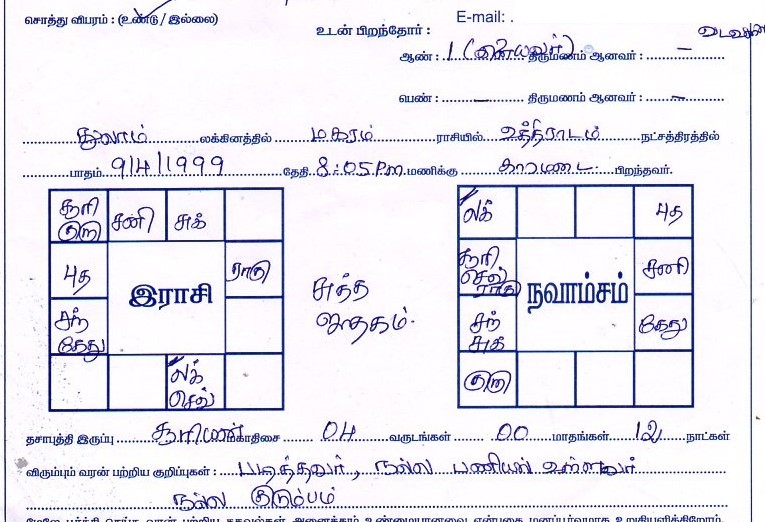 சொத்து விபரம் : (உண்டு / இல்லை)
E-mail: .
உடன் பிறந்தோர் :
ஆண் : 1 (இளையவர்) திருமணம் ஆனவர் : –
பெண் : – திருமணம் ஆனவர் : –
துலாம் லக்கினத்தில் மகரம் ராசியில் உத்திராடம் நட்சத்திரத்தில்
பாதம் 9/4/1999 தேதி 8:05 P.m மணிக்கு காரமடை பிறந்தவர்.
சூரி குரு சனி சுக்
புத ராகு
சந் கேது
லக் செவ்
இராசி
சுத்த ஜாதகம்.
லக் புத
சூரி செவ் ராகு சனி
சந் சுக் கேது
குரு
நவாம்சம்
தசாபுத்தி இருப்பு சூரியன் மகாதிசை 04 வருடங்கள் 00 மாதங்கள் 12 நாட்கள்
விரும்பும் வரன் பற்றிய குறிப்புகள் : படித்தவர், நல்ல பணியில் உள்ளவர்
நல்ல குடும்பம்